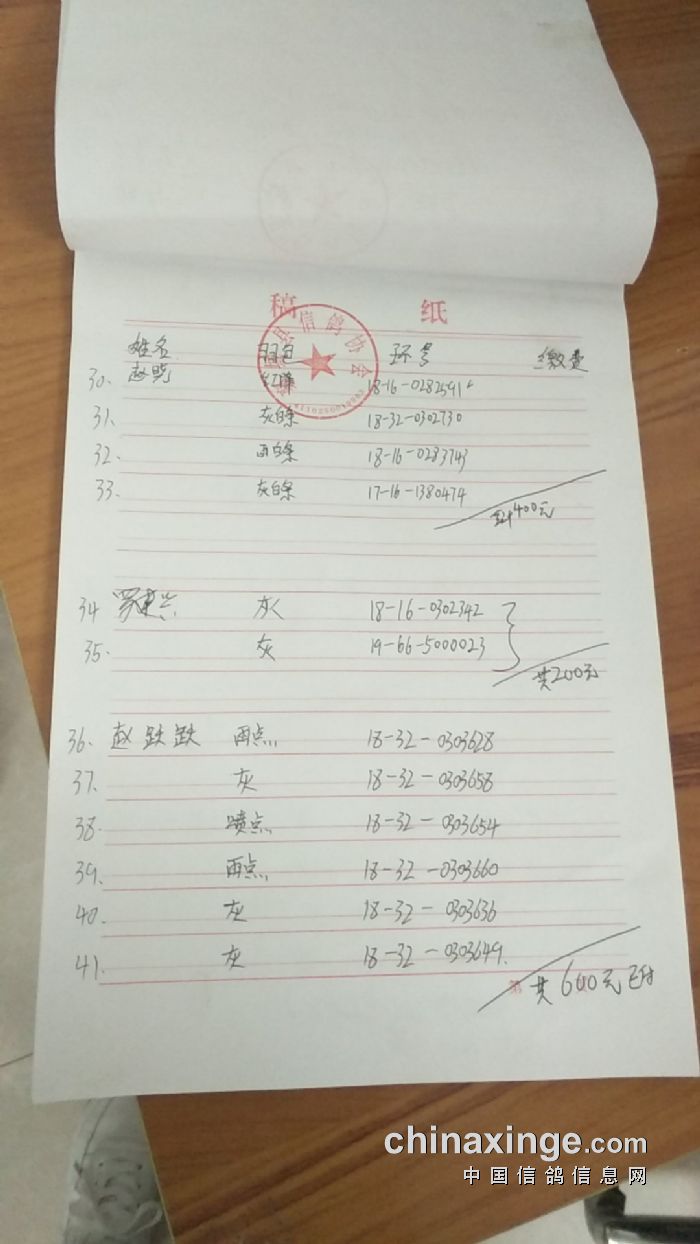 稿 纸
县信鸽协会
姓名 羽色 环号 缴费
30. 赵晓 18-16-0282591
31. 灰白条 18-32-0302730
32. 雨白条 18-16-0283743
33. 灰白条 17-16-1380474
400元
34 罗 灰 18-16-0302342
35. 灰 19-66-5000023
共200元
36. 赵跃跃 雨点 18-32-0303628
37. 灰 18-32-0303658
38. 喷点 18-32-0303654
39. 雨点 18-32-0303660
40. 灰 18-32-0303636
41. 灰 18-32-0303649.
第 共600元 已付
chinaxinge.com
中国信鸽信息网